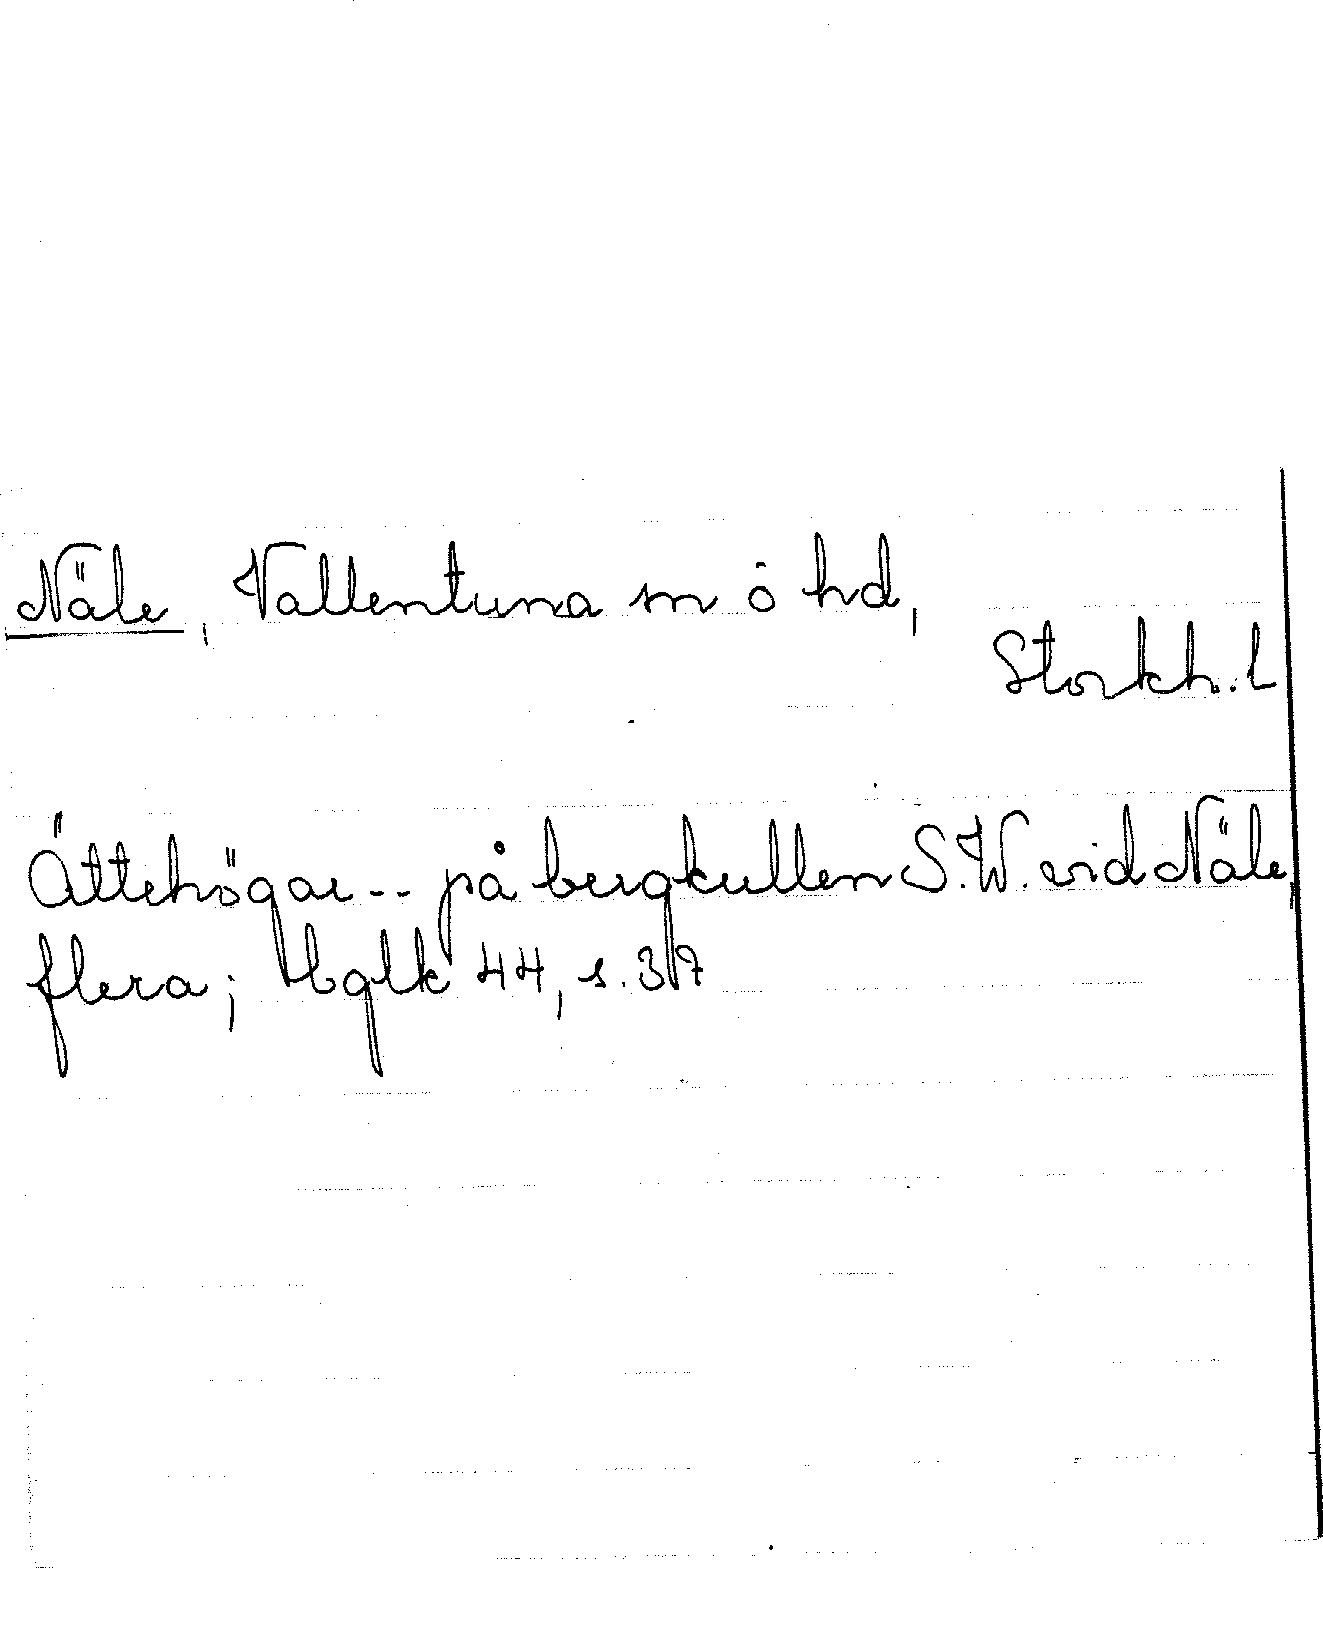 Näle, Vallentuna sn o hd,
Stockh. L
Ättehögar -- på bergkullen S.W. vid Näle,
flera; bglk 44, s. 37